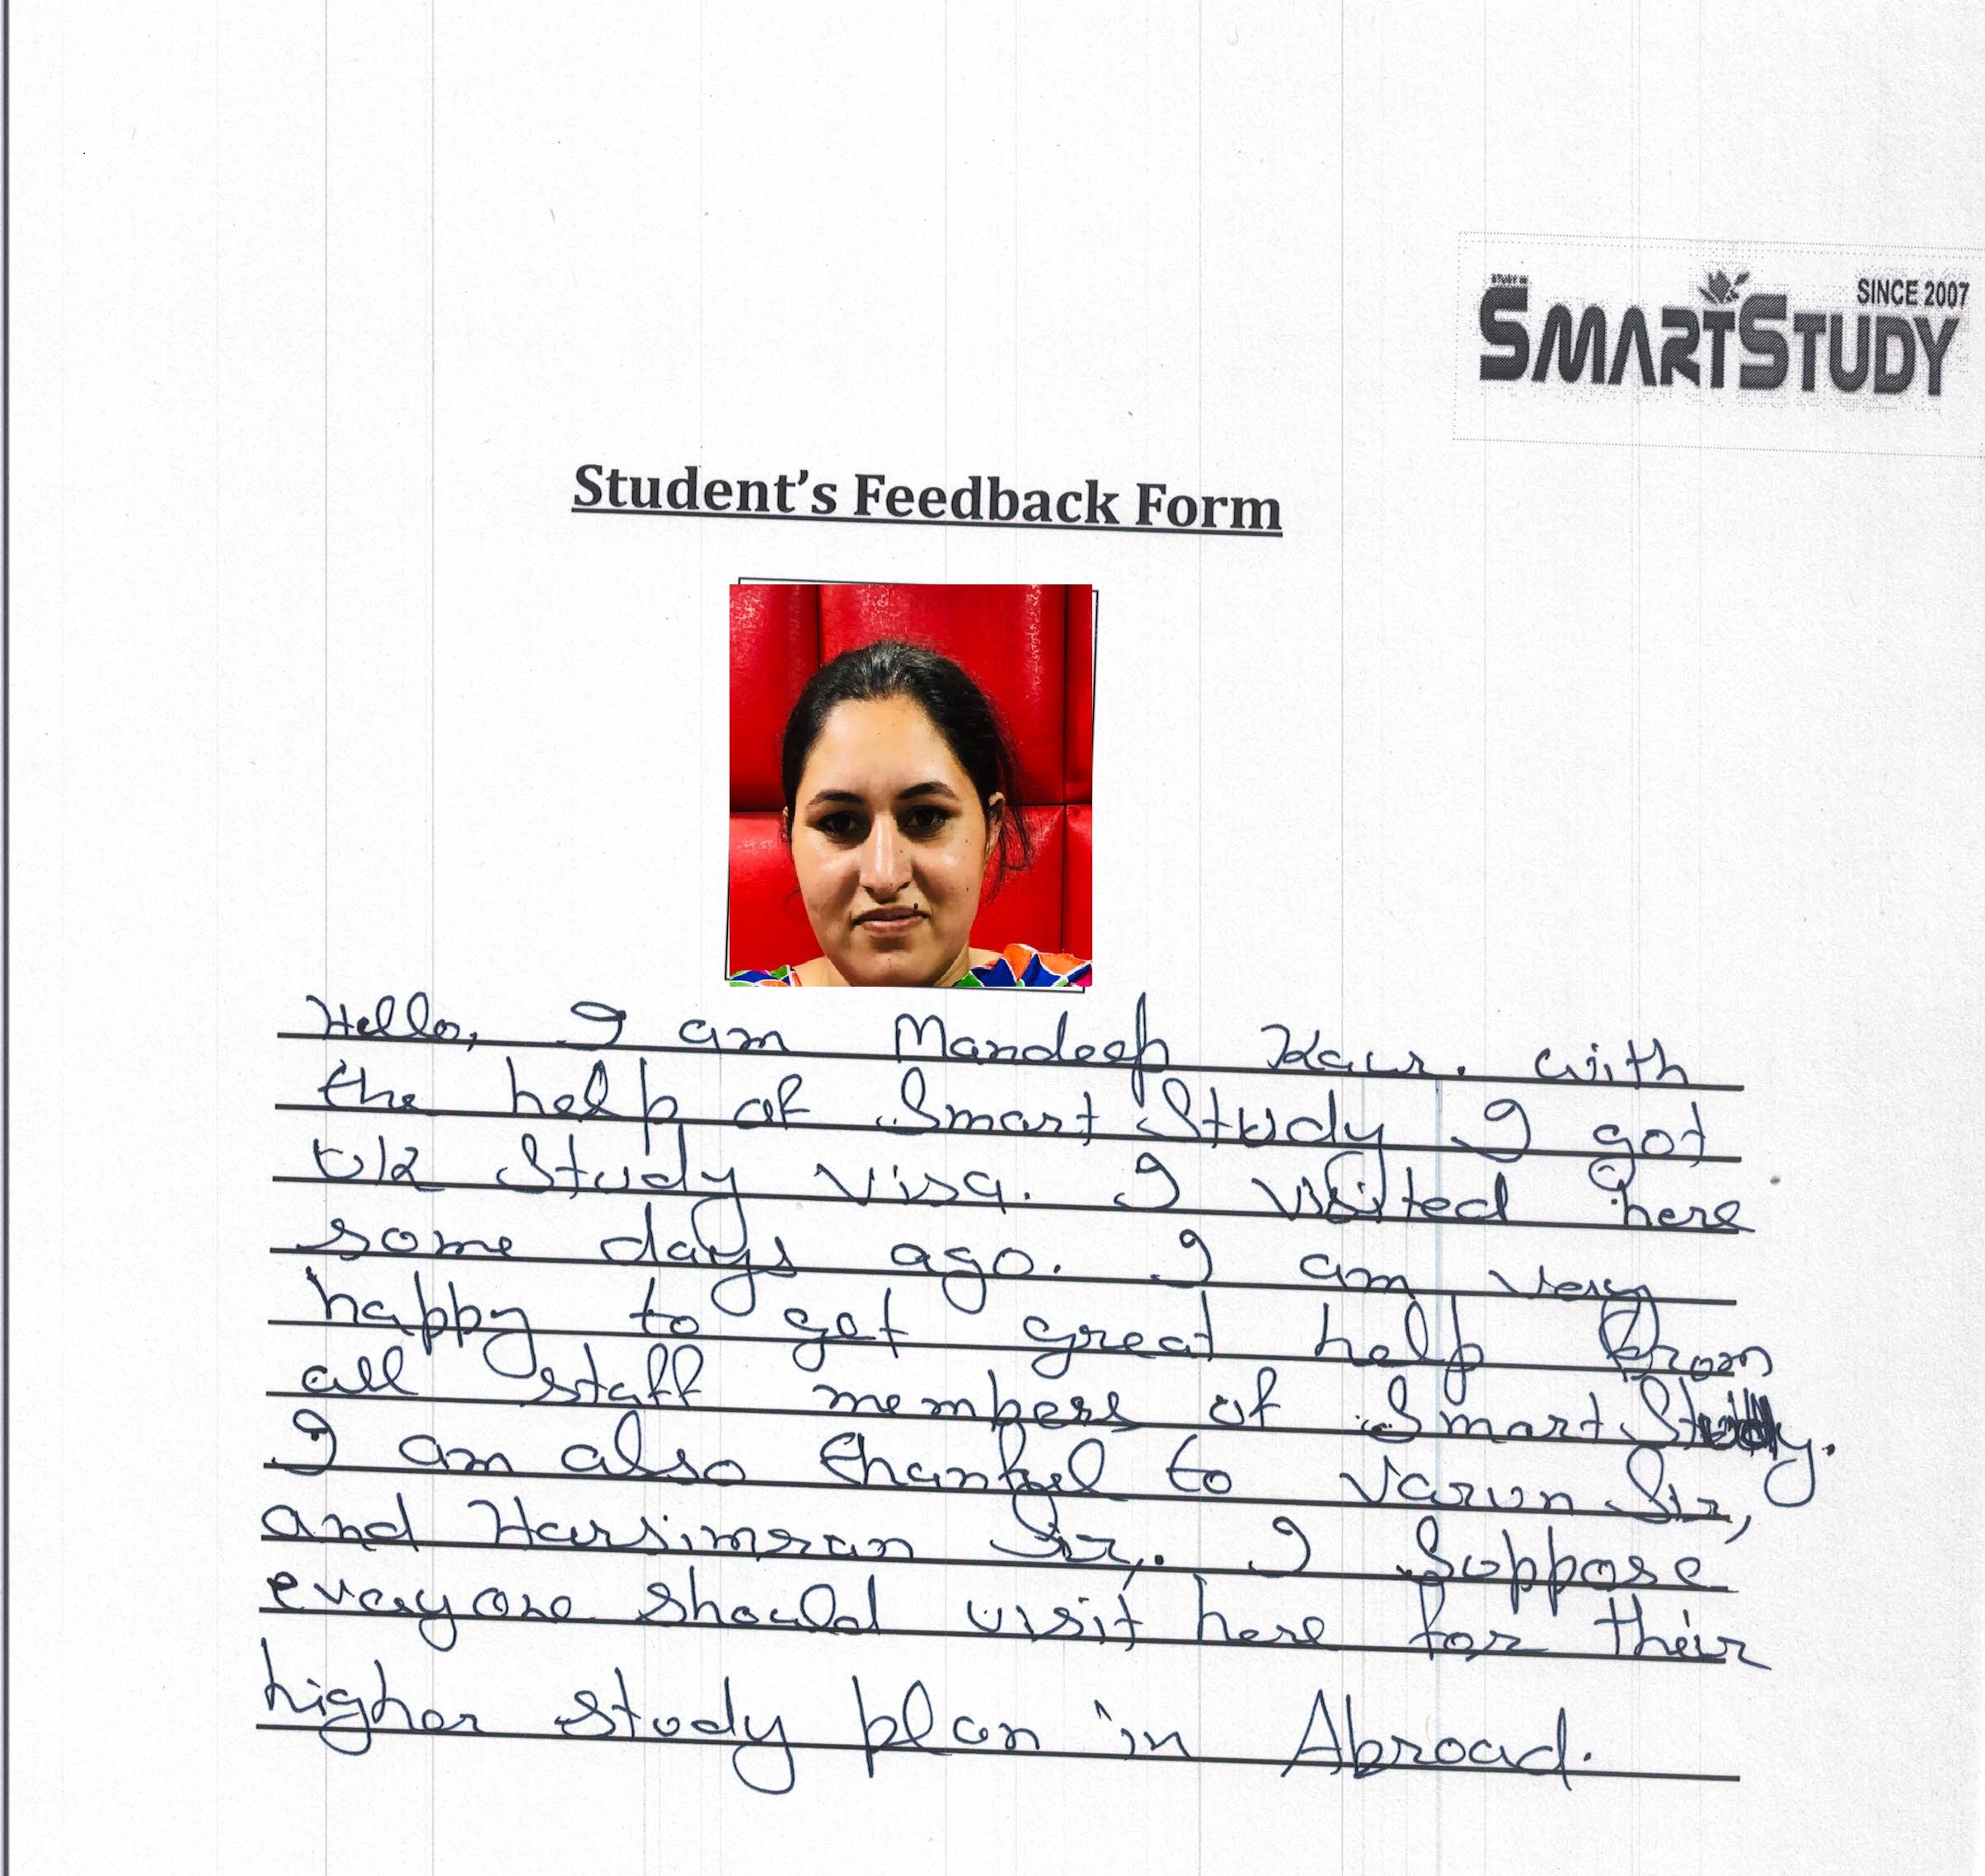 STUDY IN
SINCE 2007
SMARTSTUDY
Student's Feedback Form
Hello, I am Mandeep Kaur. with
the help of Smart Study I got
UK Study visa. I visited here
some days ago. I am very
happy to get great help from
all staff members of Smart Study.
I am also thankful to Varun Sir,
and Harsimran Sir,. I Suppose
everyone should visit here for their
higher study plan in Abroad.